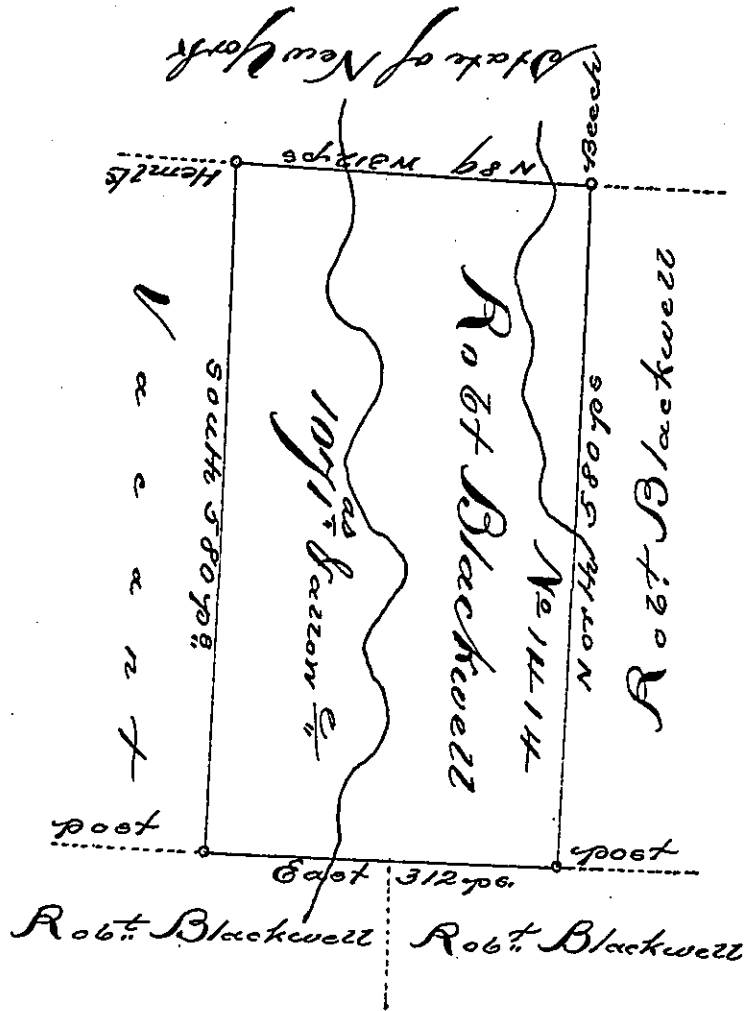 State of New York
Beech
N 89 W 312 ps
Hemlk
Robt Blackwell
North 580 ps
No 1414
Robt Blackwell
1071 as
allow ce
South 580 ps
Vacant
post
post
East 312 ps.
Robt Blackwell
Robt Blackwell